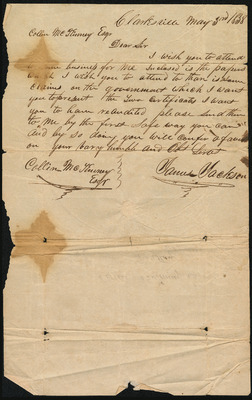 Clarksville May 3rd 1838
Collin McKinney Esqr
Dear Sir
I wish you to attend
to buisness for me Inclosed is the papers
which I wish you to attend to thare is some
claims on the government which I want
you to present the Two Certificates I want
you to have returned please send them
to me by the first Safe way you can
and by so doing you will confer a favour
on your very humble and Obt Servt
Collin McKinney
Esqr
James Jackson